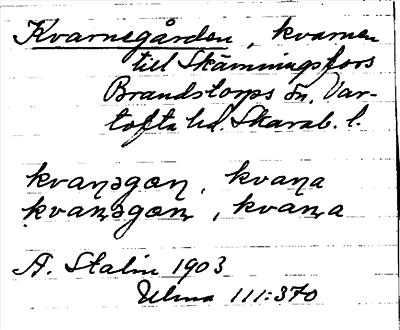 Kvarnegården, kvarnen
till Skämningsfors
Brandstorps sn. Var-
tofta hd. Skarab. l.
kvaɳəgɑɳ, kvaɳa
kvaɳəgɑɳ, kvaɳa
A. Stalin 1903
Ulma 111:370